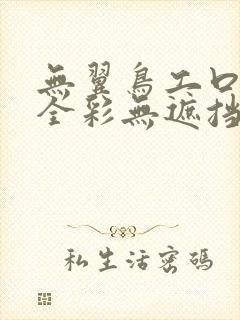 無翼鳥工口
全彩無遮挡
私生活密碼